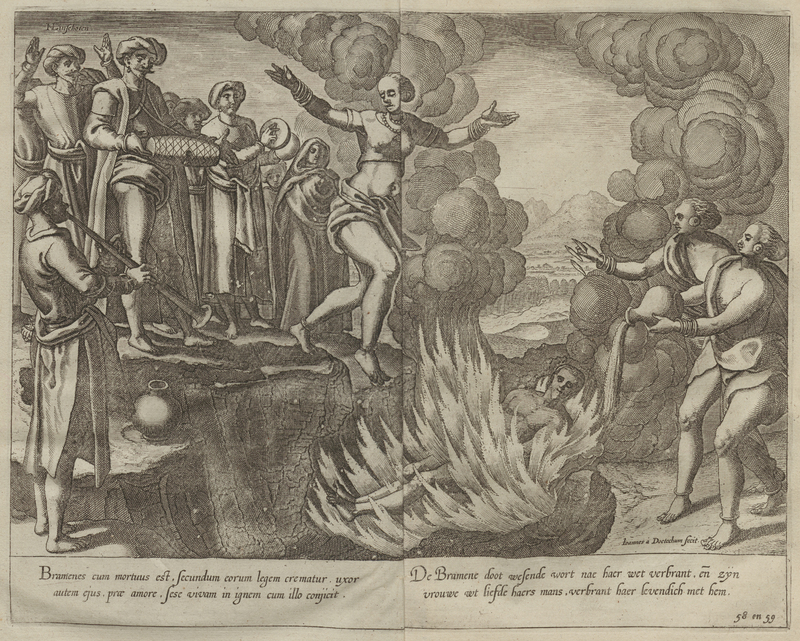 Bramenes cum mortuus est, secundum eorum legem crematur. uxor
autem ejus, præ amore, sese vivam in ignem cum illo conjicit.
De Bramene doot wesende wort nae haer wet verbrant. eñ zÿn
vrouwe wt liefde haers mans, verbrant haer levendich met hem.
Ioannes à Doetechum fecit.
58 en 59